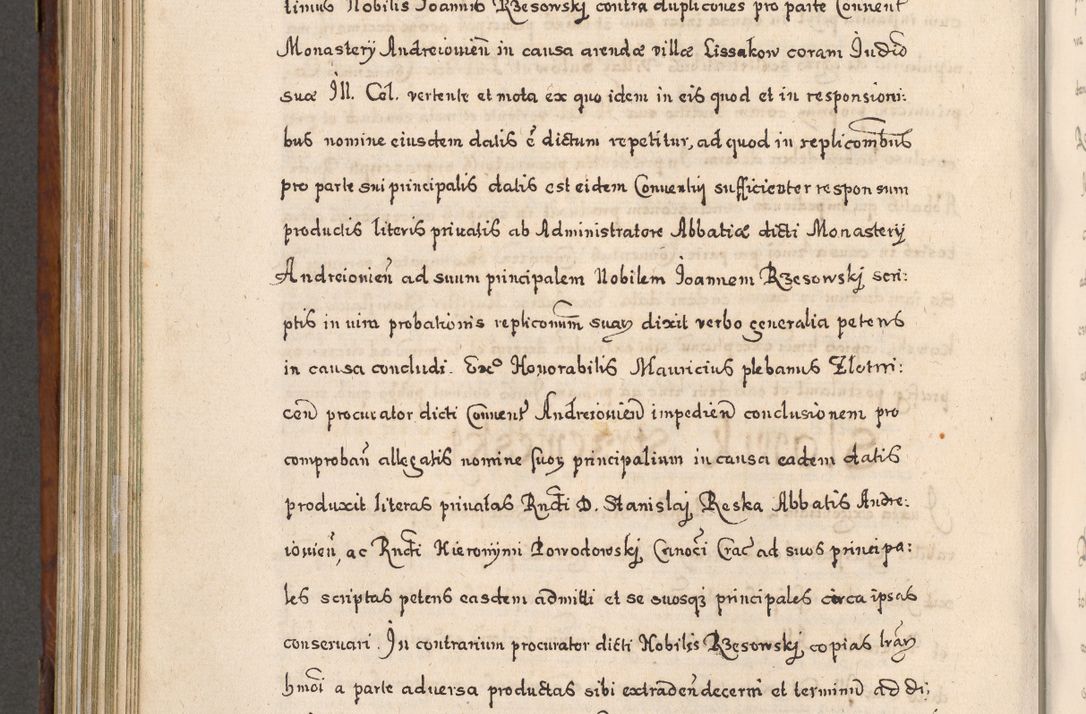 timus Nobilis Joannis Rzesowskj contra duplicones pro parte Conuent
Monastery Andreiouien̄ in causa arendæ villæ Lissakow coram Judio
suæ Ill. Cel. vertente et mota ex quo idem in eis quod et in responsioni:
bus nomine eiusdem datis ē dictum repetitur, ad quod in replicombus
pro parte sui principalis datis est eidem Conuentuj sufficienter responsum
productis literis priuatis ab Administratore Abbatiæ dicti Monastery
Andreiouien̄ ad suum principalem Nobilem Joannem Rzesowskj scri:
ptis in vim probationis repliconum suaꝝ dixit verbo generalia petens
in causa concludi. Exco Honorabilis Mauricius plebanus Zlotni:
cen̄ procurator dicti Conuent Andreiouien̄ impedien̄ conclusionem pro
comproban̄ allegatis nomine suoꝝ principalium in causa eadem datis
produxit literas priuatas Rndi D. Stanislaj Reska Abbatis Andre:
iouien̄, ac Rndi Hieronymi Powodowskj Canoci Crac ad suos principa:
les scriptas petens easdem admitti et se suosqꝫ principales circa ipsas
conseruari. In contrarium procurator dicti Nobilis Rzesowskj copias lraꝝ
hmoi a parte aduersa productas sibi extraden̄ decerni et terminū ad di: